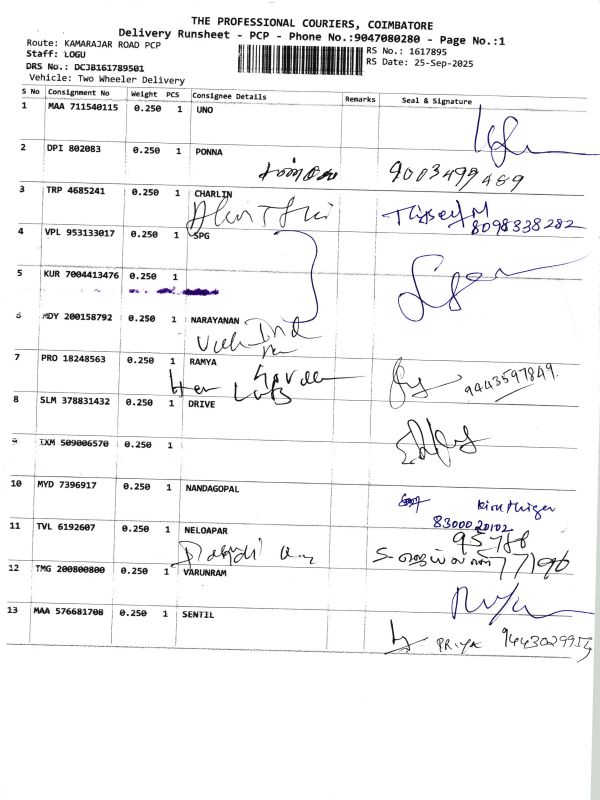 THE PROFESSIONAL COURIERS, COIMBATORE
Delivery Runsheet - PCP - Phone No.:9047080280 - Page No.:1
Route: KAMARAJAR ROAD PCP
Staff: LOGU
DRS No.: DCJB161789501
Vehicle: Two Wheeler Delivery
RS No.: 1617895
RS Date: 25-Sep-2025
S No Consignment No Weight PCS Consignee Details Remarks Seal & Signature
1 MAA 711540115 0.250 1 UNO
2 DPI 802083 0.250 1 PONNA
9003499469
3 TRP 4685241 0.250 1 CHARLIN
8098338282
4 VPL 953133017 0.250 1 SPG
5 KUR 7004413476 0.250 1
6 MDY 200158792 0.250 1 NARAYANAN
7 PRO 18248563 0.250 1 RAMYA
9443597849.
8 SLM 378831432 0.250 1 DRIVE
9 IXM 509006570 0.250 1
10 MYD 7396917 0.250 1 NANDAGOPAL
8300020102
11 TVL 6192607 0.250 1 NELOAPAR
95788
77196
12 TMG 200800800 0.250 1 VARUNRAM
13 MAA 576681708 0.250 1 SENTIL
PRIYA